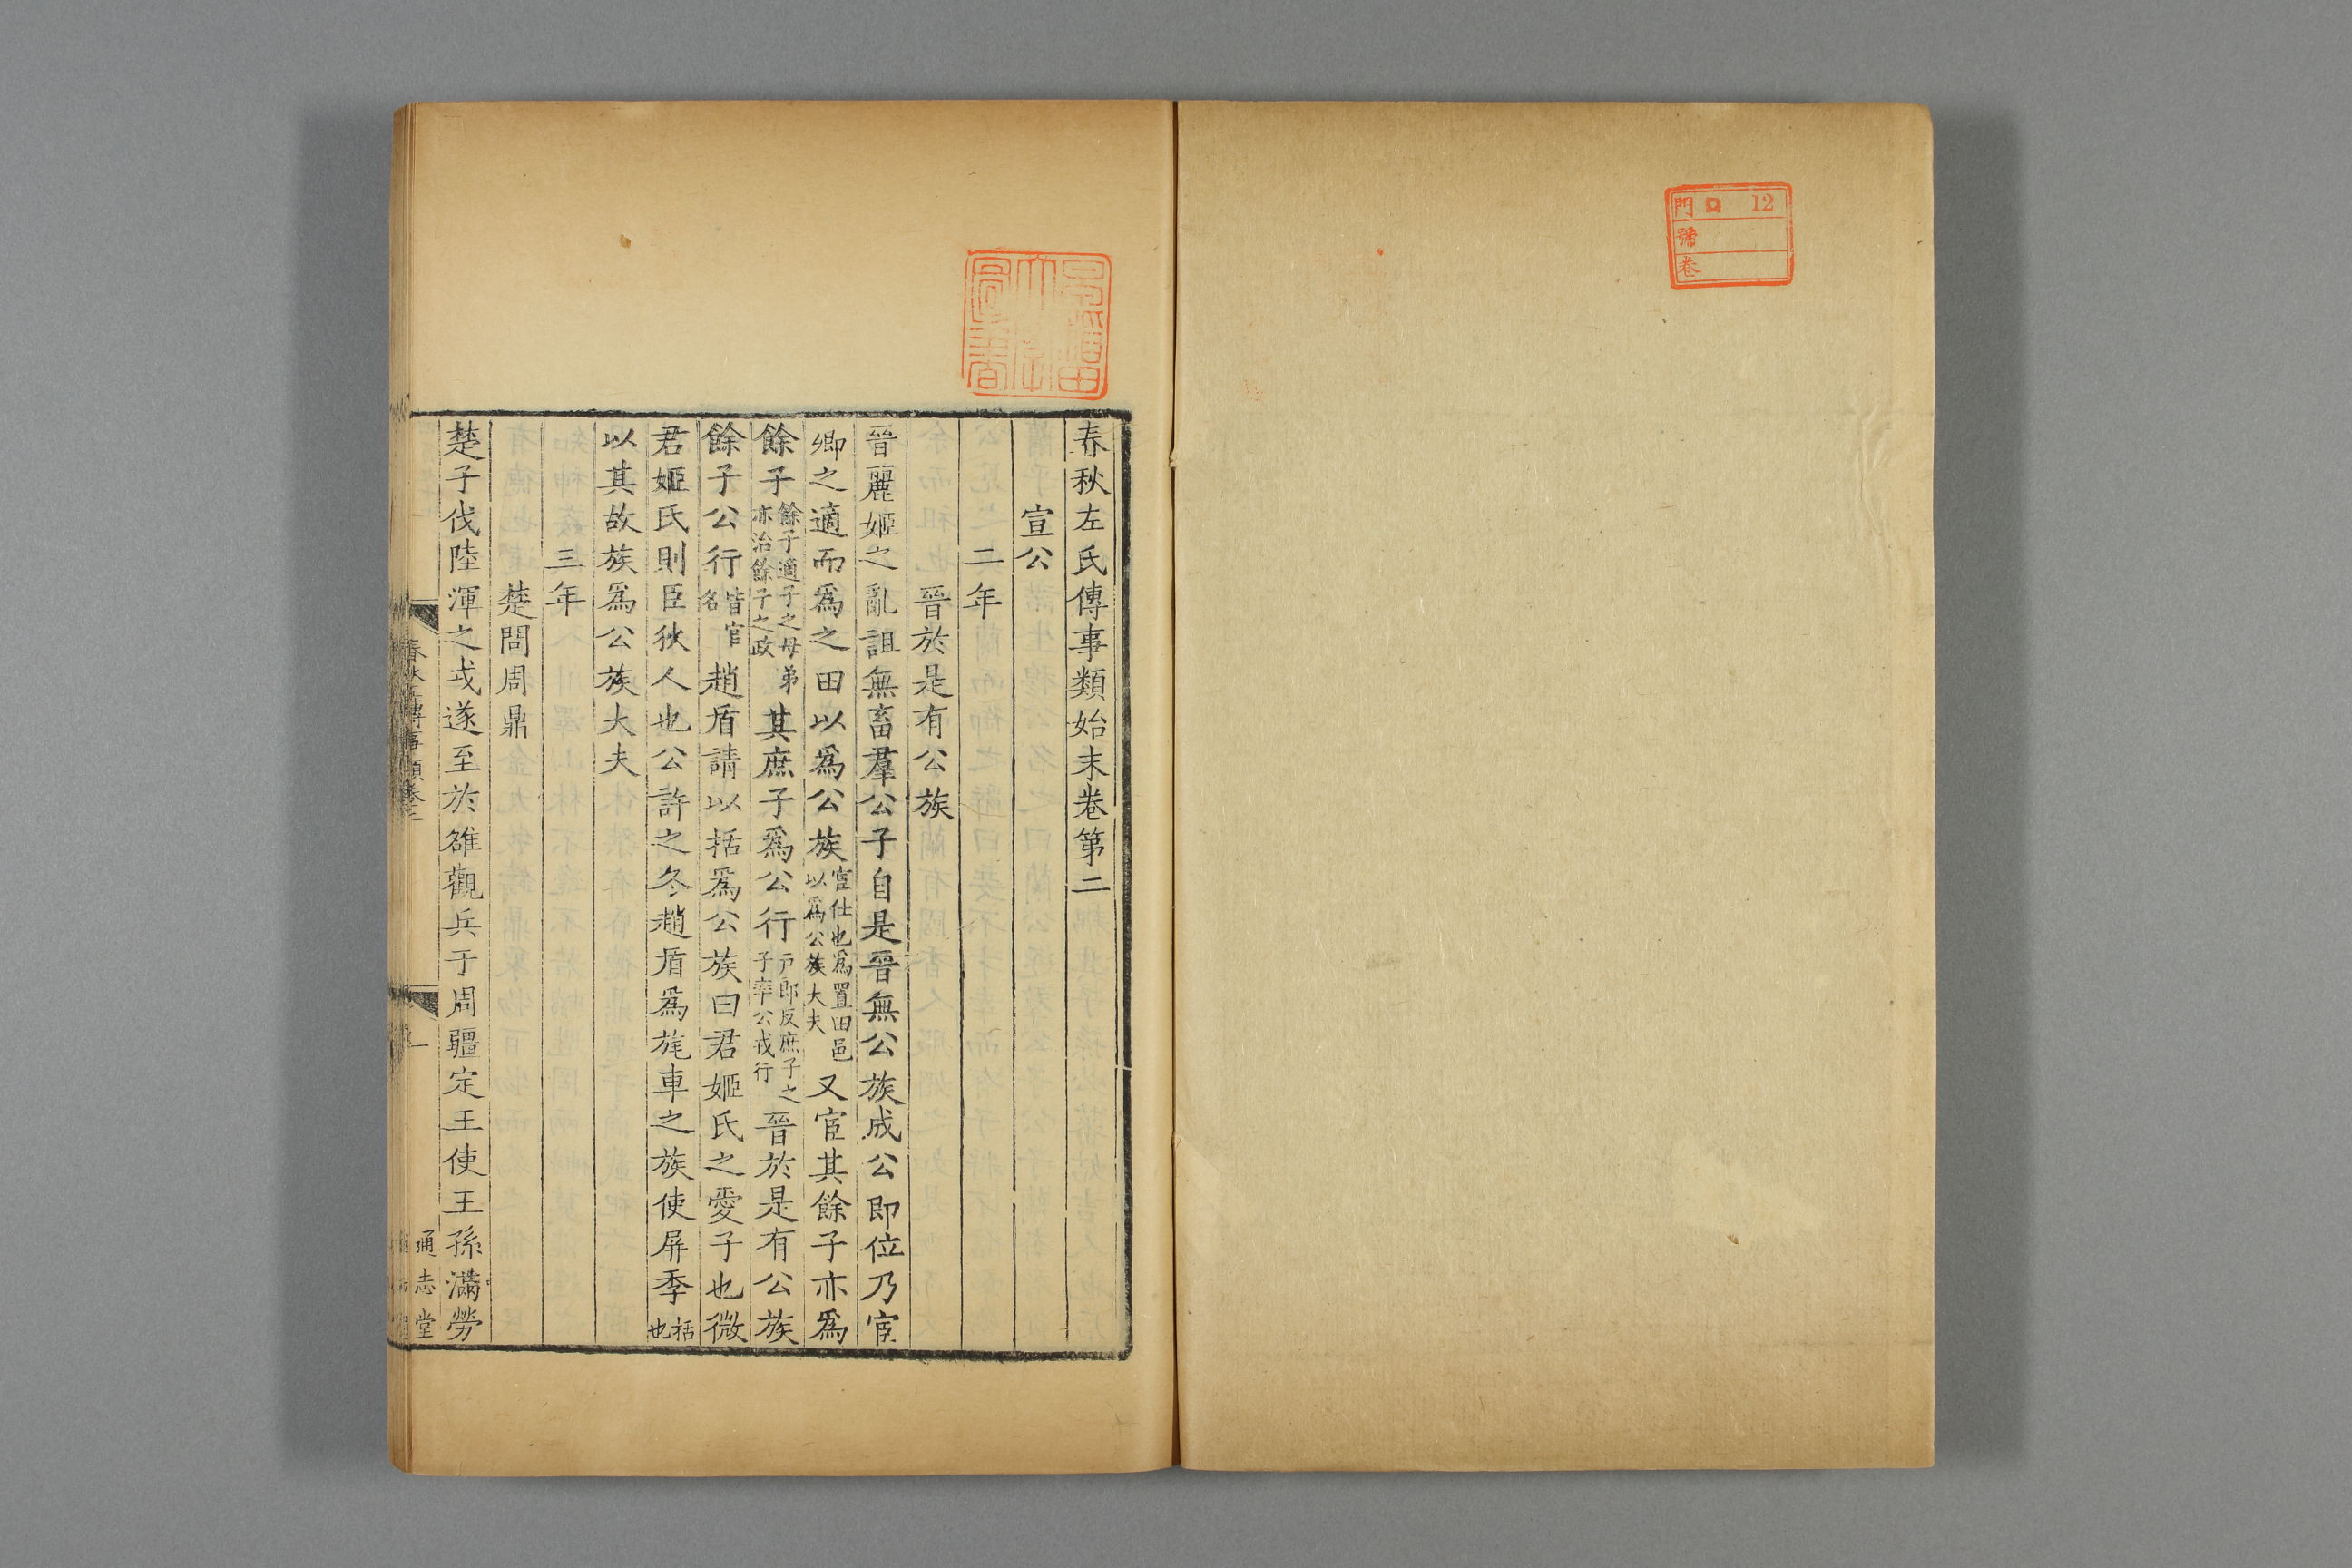 門 口 12
號
卷
早稲田
大學
圖書
春秋左氏傳事類始末卷第二
宣公
二年
晉於是有公族
晉麗姬之亂詛無畜羣公子自是晉無公族成公即位乃宦
卿之適而爲之田以爲公族宦仕也爲置田邑以爲公族大夫又宦其餘子亦爲
餘子餘子適子之母弟亦治餘子之政其庶子爲公行戶郎反庶子之子率公戎行晉於是有公族
餘子公行皆官名趙盾請以括爲公族曰君姬氏之愛子也微
君姬氏則臣狄人也公許之冬趙盾爲旄車之族使屏季括也
以其故族爲公族大夫
三年
楚問周鼎
楚子伐陸渾之戎遂至於雒觀兵于周疆定王使王孫滿勞
春秋左傳事類卷二
一
通志堂